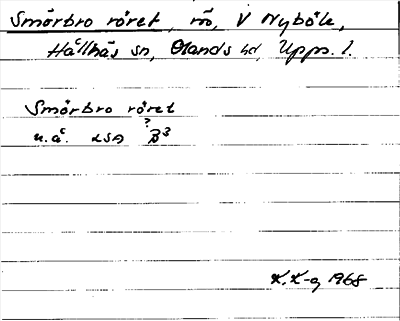 Smörbro röret, rö, V Nyböle,
Hållnäs sn, Olands hd, Upps. l.
Smörbro röret
u.å. LSA B3
?
K.K-g 1968